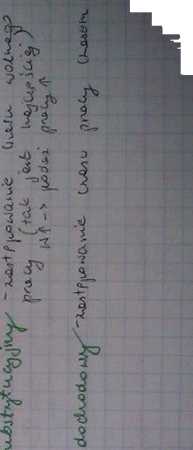 substytucyjny - zastępowanie czasu wolnego
pracą (tak jest najczęściej)
w↑ -> podaż pracy ↑
dochodowy - zastępowanie czasu pracy czasem